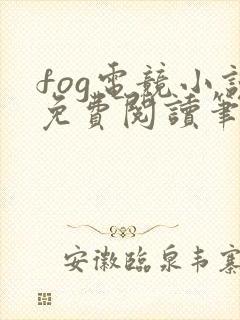 fog電競小說
免費閱讀筆
安徽臨泉韦寨